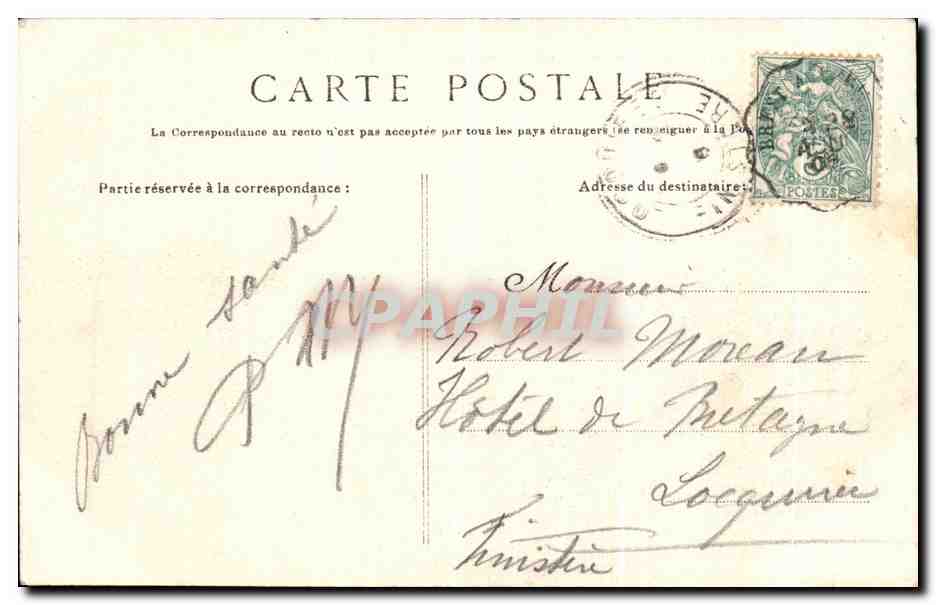 CARTE POSTALE
La Correspondance au recto n'est pas acceptée par tous les pays étrangers (se renseigner à la Po
Partie réservée à la correspondance :
Adresse du destinataire :
Bonne santé
Monsieur
Robert Moreau
Hôtel de Bretagne
Locquirec
Finistère
CPAPHIL
BREST A
POSTES